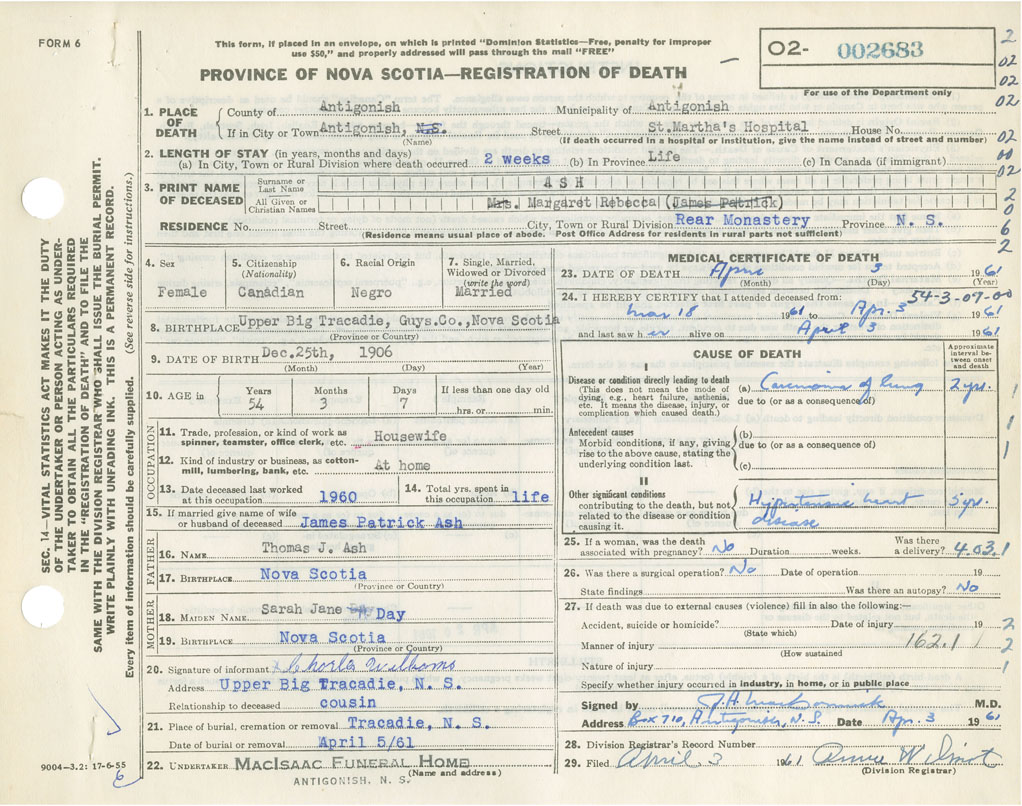 FORM 6
This form, if placed in an envelope, on which is printed "Dominion Statistics—Free, penalty for improper
use $50," and properly addressed will pass through the mail "FREE"
PROVINCE OF NOVA SCOTIA—REGISTRATION OF DEATH
O2- 002683
For use of the Department only
2
02
02
02
02
00
02
2
0
0
6
2
SEC. 14—VITAL STATISTICS ACT MAKES IT THE DUTY
OF THE UNDERTAKER OR PERSON ACTING AS UNDER-
TAKER TO OBTAIN ALL THE PARTICULARS REQUIRED
IN THE "REGISTRATION OF DEATH" AND TO FILE THE
SAME WITH THE DIVISION REGISTRAR WHO SHALL ISSUE THE BURIAL PERMIT.
WRITE PLAINLY WITH UNFADING INK. THIS IS A PERMANENT RECORD.
Every item of information should be carefully supplied. (See reverse side for instructions.)
1. PLACE OF DEATH
County of Antigonish Municipality of Antigonish
If in City or Town Antigonish, N.S. Street St.Martha's Hospital House No.
(Name) (If death occurred in a hospital or institution, give the name instead of street and number)
2. LENGTH OF STAY (in years, months and days)
(a) In City, Town or Rural Division where death occurred 2 weeks (b) In Province Life (c) In Canada (if immigrant)
3. PRINT NAME OF DECEASED
Surname or Last Name ASH
All Given or Christian Names Mrs. Margaret Rebecca (James Patrick)
RESIDENCE No. Street City, Town or Rural Division Rear Monastery Province N. S.
(Residence means usual place of abode. Post Office Address for residents in rural parts not sufficient)
4. Sex
Female
5. Citizenship
(Nationality)
Canadian
6. Racial Origin
Negro
7. Single, Married,
Widowed or Divorced
(write the word)
Married
8. BIRTHPLACE Upper Big Tracadie, Guys.Co.,Nova Scotia
(Province or County)
9. DATE OF BIRTH Dec.25th, 1906
(Month) (Day) (Year)
10. AGE in
Years Months Days If less than one day old
54 3 7 hrs. or min.
OCCUPATION
11. Trade, profession, or kind of work as
spinner, teamster, office clerk, etc. Housewife
12. Kind of industry or business, as cotton-
mill, lumbering, bank, etc. At home
13. Date deceased last worked
at this occupation 1960
14. Total yrs. spent in
this occupation life
15. If married give name of wife
or husband of deceased James Patrick Ash
FATHER
16. NAME Thomas J. Ash
17. BIRTHPLACE Nova Scotia
(Province or Country)
MOTHER
18. MAIDEN NAME Sarah Jane Day
19. BIRTHPLACE Nova Scotia
(Province or Country)
20. Signature of informant Charles Williams
Address Upper Big Tracadie, N. S.
Relationship to deceased cousin
21. Place of burial, cremation or removal Tracadie, N. S.
Date of burial or removal April 5/61
22. UNDERTAKER MACISAAC FUNERAL HOME
(Name and address)
ANTIGONISH, N. S.
9004-3.2: 17-6-55
6
MEDICAL CERTIFICATE OF DEATH
23. DATE OF DEATH April 3 1961
(Month) (Day) (Year)
24. I HEREBY CERTIFY that I attended deceased from: 54-3-07-00
Mar 18 1961 to Apr. 3 1961
and last saw her alive on April 3 1961
CAUSE OF DEATH
Approximate
interval be-
tween onset
and death
I
Disease or condition directly leading to death
(This does not mean the mode of
dying, e.g., heart failure, asthenia,
etc. It means the disease, injury, or
complication which caused death.)
(a) Carcinoma of lung 2 yrs. 1
due to (or as a consequence of)
Antecedent causes
Morbid conditions, if any, giving
rise to the above cause, stating the
underlying condition last.
(b) 1
due to (or as a consequence of)
(c) 1
II
Other significant conditions
contributing to the death, but not
related to the disease or condition
causing it.
Hypertensive heart 5 yr.
disease
25. If a woman, was the death
associated with pregnancy? No Duration weeks. Was there
a delivery? 4.03.1
26. Was there a surgical operation? No Date of operation 19
State findings Was there an autopsy? No
27. If death was due to external causes (violence) fill in also the following:—
Accident, suicide or homicide? Date of injury 19 2
(State which)
Manner of injury 162.1 2
(How sustained
Nature of injury 1
Specify whether injury occurred in industry, in home, or in public place
Signed by M.D.
Address Box 710, Antigonish, N.S. Date Apr. 3 1961
28. Division Registrar's Record Number
29. Filed April 3 1961 Annie Wilmot
(Division Registrar)